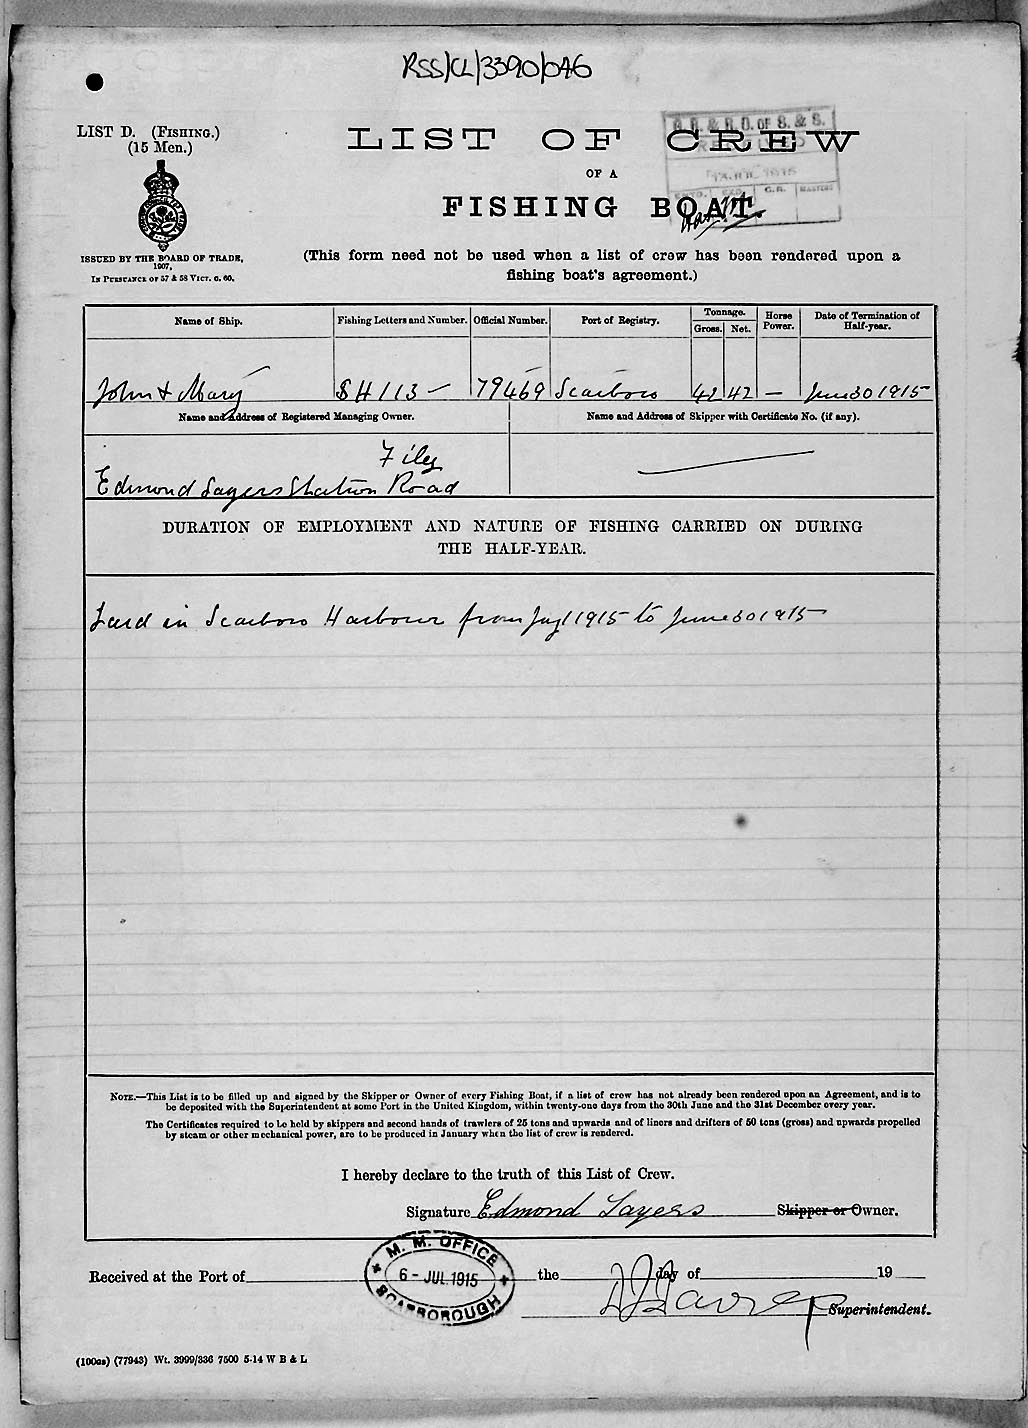 RSS/CL/3390/046
LIST D. (FISHING.)
(15 Men.)
LIST OF CREW
OF A
FISHING BOAT.
R.G. & R.D. OF S. & S.
RECEIVED
JUL 1915
C.R. MASTERS
ISSUED BY THE BOARD OF TRADE,
1907,
IN PURSUANCE OF 57 & 58 VICT. C. 60.
(This form need not be used when a list of crew has been rendered upon a
fishing boat's agreement.)
Name of Ship. Fishing Letters and Number. Official Number. Port of Registry. Tonnage. Gross. Net. Horse Power. Date of Termination of Half-year.
John & Mary SH 113 – 79469 Scarboro 42 42 — June 30 1915
Name and Address of Registered Managing Owner. Name and Address of Skipper with Certificate No. (if any).
Filey
Edmond Sayers Station Road
DURATION OF EMPLOYMENT AND NATURE OF FISHING CARRIED ON DURING
THE HALF-YEAR.
Laid in Scarboro Harbour from Jay 1 1915 to June 30 1915
NOTE.—This List is to be filled up and signed by the Skipper or Owner of every Fishing Boat, if a list of crew has not already been rendered upon an Agreement, and is to
be deposited with the Superintendent at some Port in the United Kingdom, within twenty-one days from the 30th June and the 31st December every year.
The Certificates required to be held by skippers and second hands of trawlers of 25 tons and upwards and of liners and drifters of 50 tons (gross) and upwards propelled
by steam or other mechanical power, are to be produced in January when the list of crew is rendered.
I hereby declare to the truth of this List of Crew.
Signature Edmond Sayers Skipper or Owner.
M. M. OFFICE
6 - JUL 1915
SCARBOROUGH
Received at the Port of the day of 19
Superintendent.
(100as) (77943) Wt. 3999/336 7500 5-14 W B & L